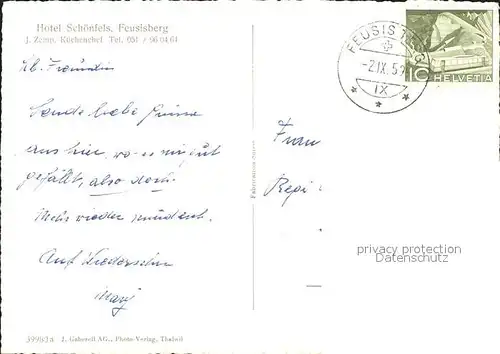 Hotel Schönfels, Feusisberg
J. Zeino, Küchenchef Tel. 051 / 96 04 61
Lb. Freundin
Sende liebe Grüsse
aus hier, wo es mir gut
gefällt, also doch.
Mehr wieder mündlich.
Auf Wiedersehn
Mary
Frau
Regi
FEUSISBERG
-2.IX.5
IX
10
HELVETIA
privacy protection
Datenschutz
J. Gaberell AG., Photo-Verlag, Thalwil